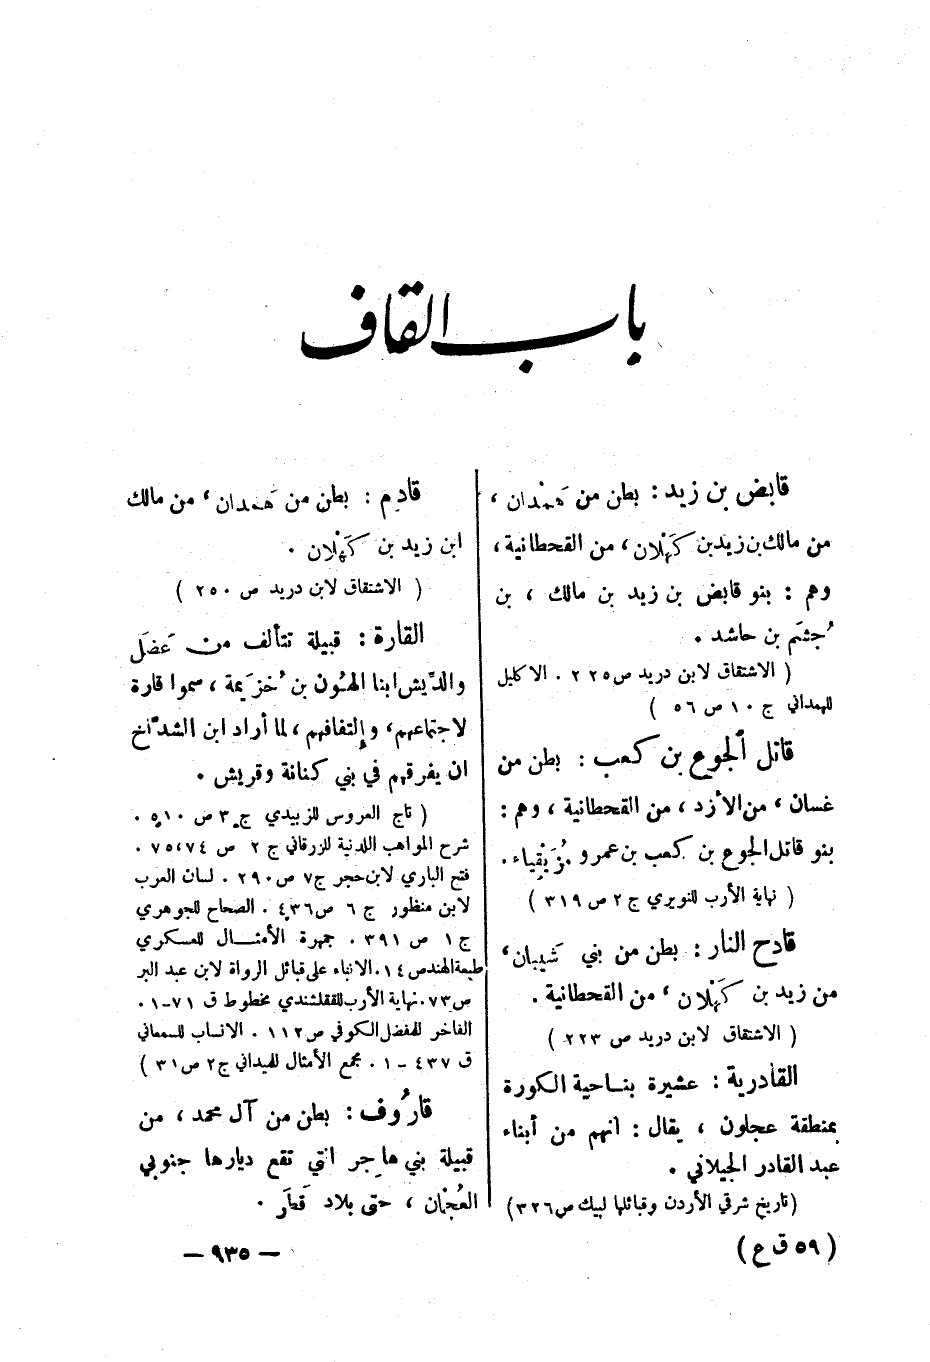 باب القاف
قابض بن زيد : بطن من هَمْدان ،
من مالك بن زيد بن كَهْلان ، من القحطانية ،
وهم : بنو قابض بن زيد بن مالك ، بن
جُشَم بن حاشد .
( الاشتقاق لابن دريد ص ٢٢٥ . الاكليل
للهمداني ج ١٠ ص ٥٦ )
قاتل الجوع بن كعب : بطن من
غسان ، من الأزد ، من القحطانية ، وهم :
بنو قاتل الجوع بن كعب بن عمرو مُزَيْقِياء .
( نهاية الأرب للنويري ج ٢ ص ٣١٩ )
قادح النار : بطن من بني شيبان ،
من زيد بن كَهْلان ، من القحطانية .
( الاشتقاق لابن دريد ص ٢٢٣ )
القادرية : عشيرة بناحية الكورة
بمنطقة عجلون ، يقال : انهم من أبناء
عبد القادر الجيلاني .
( تاريخ شرقي الأردن وقبائلها لبيك ص ٣٢٦ )
قادِم : بطن من هَمدان ، من مالك
ابن زيد بن كَهْلان .
( الاشتقاق لابن دريد ص ٢٥٠ )
القارة : قبيلة تتألف من عَضَل
والدِّيش ابنا الهَوْن بن خُزَيمة ، سموا قارة
لاجتماعهم ، وإلتفافهم ، لما أراد ابن الشدّاخ
ان يفرقهم في بني كنانة وقريش .
( تاج العروس للزبيدي ج ٣ ص ٥١٠ .
شرح المواهب اللدنية للزرقاني ج ٢ ص ٧٤ ، ٧٥ .
فتح الباري لابن حجر ج ٧ ص ٢٩٠ . لسان العرب
لابن منظور ج ٦ ص ٤٣٦ . الصحاح للجوهري
ج ١ ص ٣٩١ . جمهرة الأمثال للعسكري
طبعة الهند ص ١٤ . الانباء على قبائل الرواة لابن عبد البر
ص ٧٣ . نهاية الأرب للقلقشندي مخطوط ق ٧١ - ١ .
الفاخر للمفضل الكوفي ص ١١٢ . الانساب للسمعاني
ق ٤٣٧ - ١ . مجمع الأمثال للميداني ج ٢ ص ٣١ )
قارُوف : بطن من آل محمد ، من
قبيلة بني هاجر التي تقع ديارها جنوبي
العُجْمان ، حتى بلاد قَطَر .
( ٥٩ ق ع )
— ٩٣٥ —